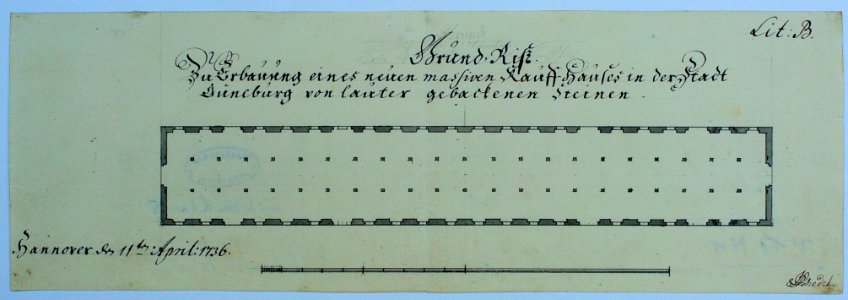 Lit: B.
Grund-Riß
Zu Erbauung eines neuen massiven Kauff-Hauses in der Stadt
Lüneburg von lauter gebackenen Steinen.
Hannover den 11ten April: 1736.